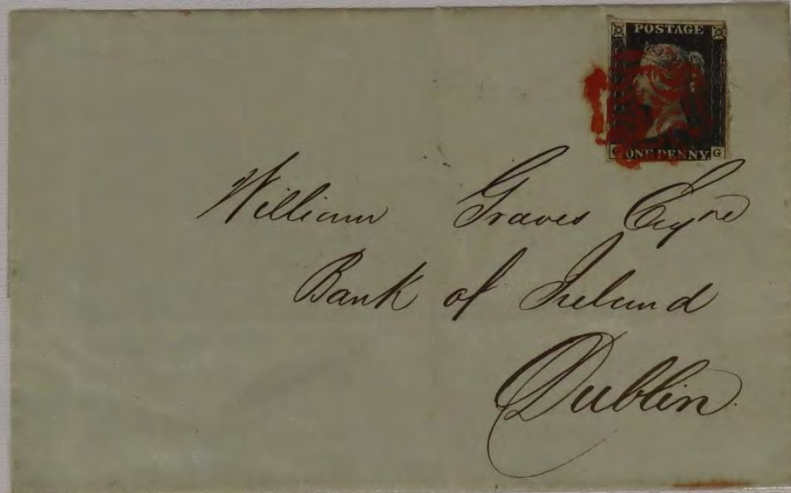 POSTAGE
ONE PENNY
G
William Graves Esqre
Bank of Ireland
Dublin